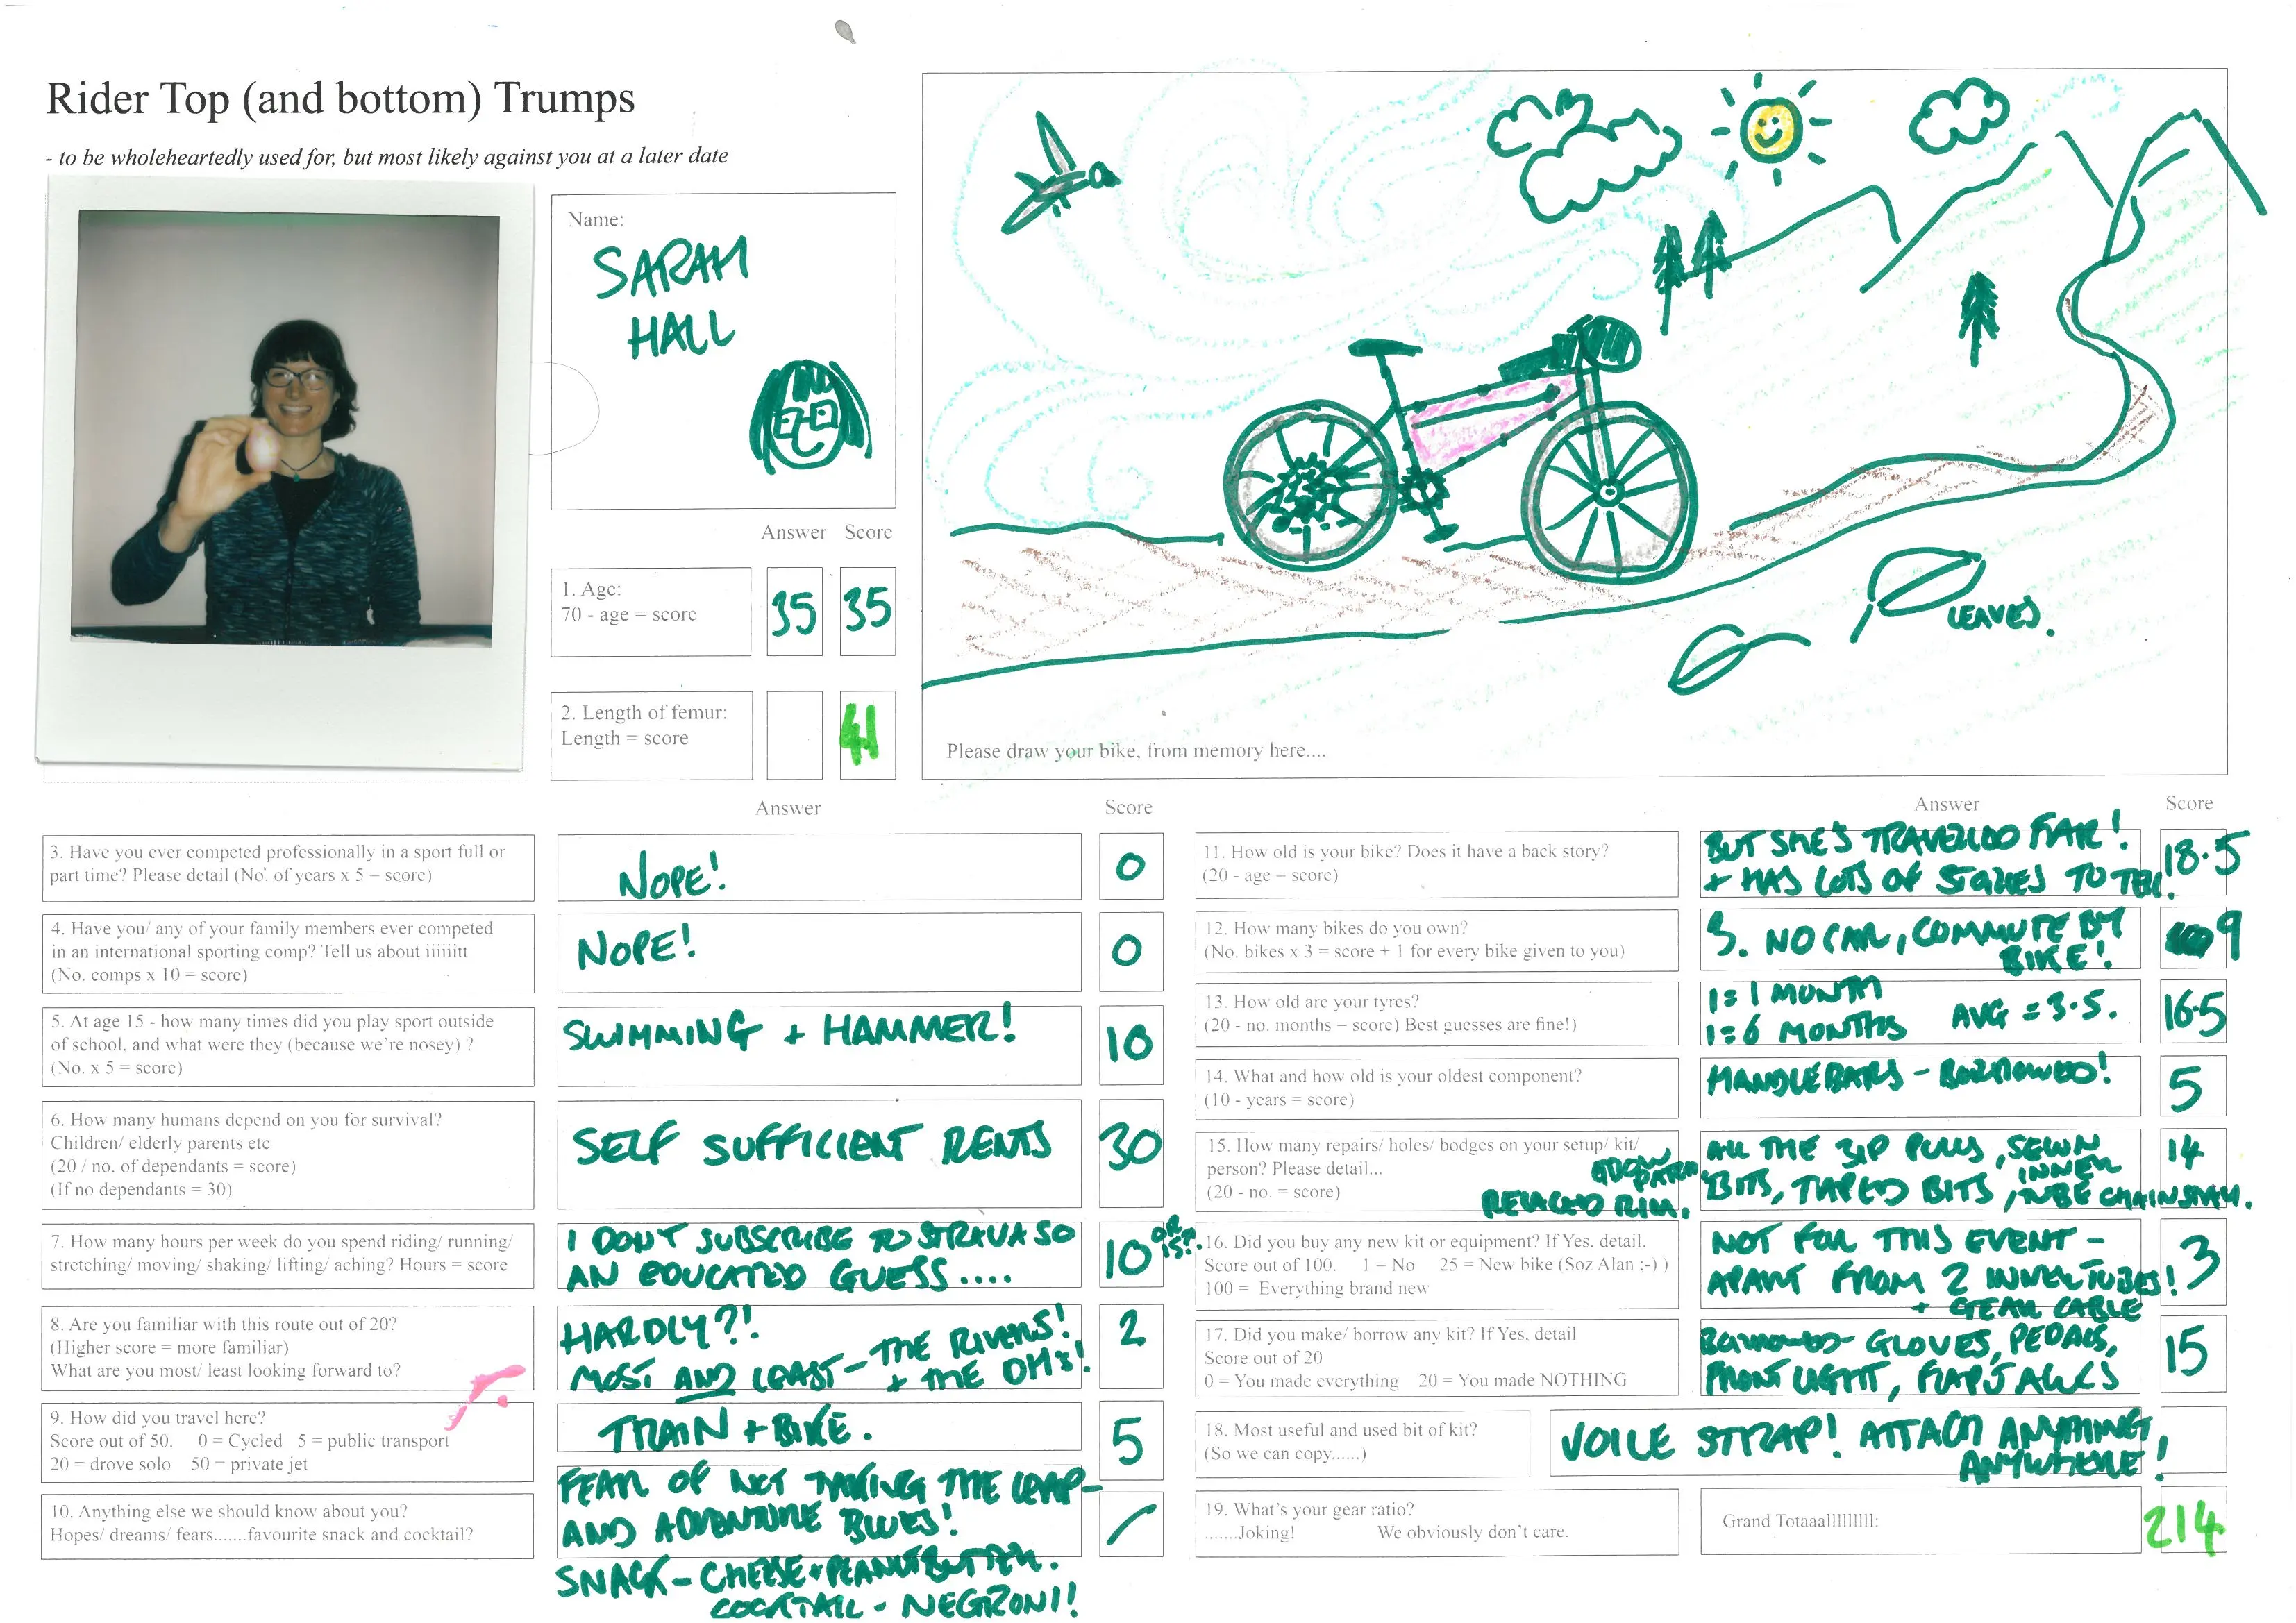 Rider Top (and bottom) Trumps
- to be wholeheartedly used for, but most likely against you at a later date
Name:
SARAH
HALL
Answer Score
1. Age:
70 - age = score
35 35
2. Length of femur:
Length = score
41
LEAVES.
Please draw your bike, from memory here....
Answer Score
3. Have you ever competed professionally in a sport full or
part time? Please detail (No'. of years x 5 = score)
NOPE!
0
4. Have you/ any of your family members ever competed
in an international sporting comp? Tell us about iiiiiitt
(No. comps x 10 = score)
NOPE!
0
5. At age 15 - how many times did you play sport outside
of school, and what were they (because we're nosey) ?
(No. x 5 = score)
SWIMMING + HAMMER!
10
6. How many humans depend on you for survival?
Children/ elderly parents etc
(20 / no. of dependants = score)
(If no dependants = 30)
SELF SUFFICIENT RENTS
30
7. How many hours per week do you spend riding/ running/
stretching/ moving/ shaking/ lifting/ aching? Hours = score
I DON'T SUBSCRIBE TO STRAVA SO
AN EDUCATED GUESS....
10 OR 15?!.
8. Are you familiar with this route out of 20?
(Higher score = more familiar)
What are you most/ least looking forward to?
HARDLY?!
MOST AND LEAST - THE RIVERS!
+ THE DH's!
2
9. How did you travel here?
Score out of 50. 0 = Cycled 5 = public transport
20 = drove solo 50 = private jet
TRAIN + BIKE.
5
10. Anything else we should know about you?
Hopes/ dreams/ fears.......favourite snack and cocktail?
FEAR OF NOT TAKING THE LEAP -
AND ADVENTURE BLUES!
SNACK - CHEESE + PEANUTBUTTER.
COCKTAIL - NEGRONI!
Answer Score
11. How old is your bike? Does it have a back story?
(20 - age = score)
BUT SHE'S TRAVELLED FAR!
+ HAS LOTS OF STORIES TO TELL.
18.5
12. How many bikes do you own?
(No. bikes x 3 = score + 1 for every bike given to you)
3. NO CAR, COMMUTE BY
BIKE!
9
13. How old are your tyres?
(20 - no. months = score) Best guesses are fine!)
1 = 1 MONTH
1 = 6 MONTHS AVG = 3.5.
16.5
14. What and how old is your oldest component?
(10 - years = score)
HANDLEBARS - BORROWED!
5
15. How many repairs/ holes/ bodges on your setup/ kit/
person? Please detail...
(20 - no. = score)
ALL THE ZIP PULLS, SEWN
BITS, TAPED BITS, INNER
TUBE CHAINSTAY.
REPLACED RIM.
14
16. Did you buy any new kit or equipment? If Yes, detail.
Score out of 100. 1 = No 25 = New bike (Soz Alan :-) )
100 = Everything brand new
NOT FOR THIS EVENT -
APART FROM 2 INNERTUBES!
+ GEAR CABLE
3
17. Did you make/ borrow any kit? If Yes, detail
Score out of 20
0 = You made everything 20 = You made NOTHING
BORROWED - GLOVES, PEDALS,
FRONT LIGHT, FLAPJACKS
15
18. Most useful and used bit of kit?
(So we can copy......)
VOILE STRAP! ATTACH ANYTHING,
ANYWHERE!
19. What's your gear ratio?
.......Joking! We obviously don't care.
Grand Totaaalllllllll:
214